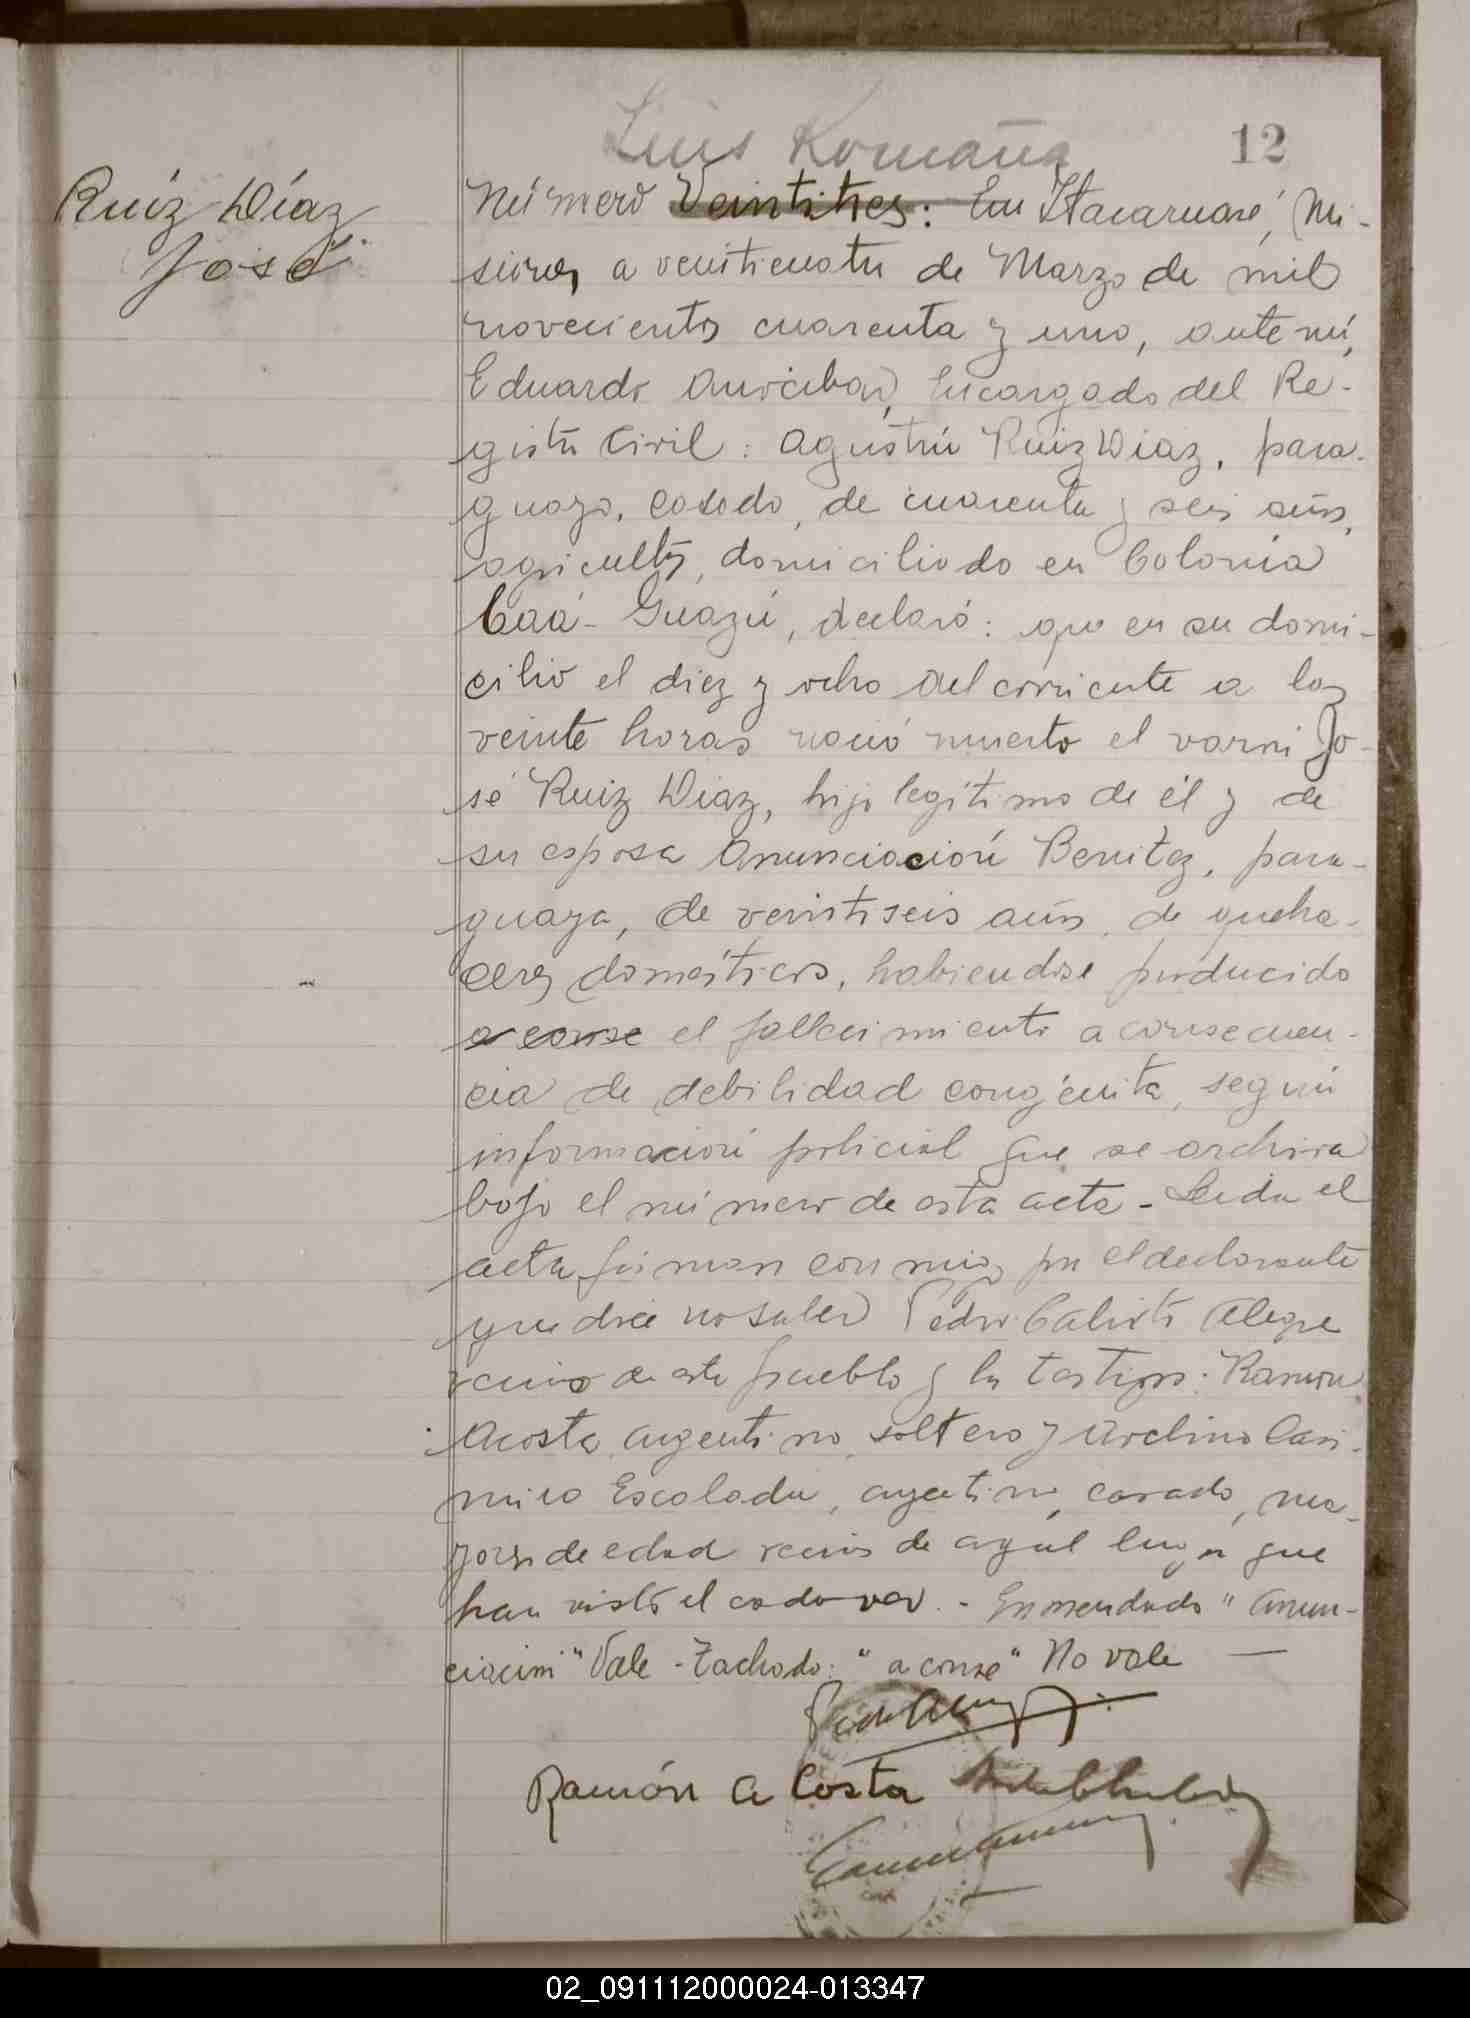 Luis Romaña
12
Ruiz Díaz
José
Número Veintitres: En Itacaruaré, Mi-
siones, a veinticuatro de Marzo de mil
novecientos cuarenta y uno, ante mí,
Eduardo Encargado del Re-
gistro Civil: Agustín Ruiz Diaz, para-
guayo, casado, de cuarenta y seis años,
agricultor, domiciliado en Colonia
Caá-Guazú, declaró: que en su domi-
cilio el diez y ocho del corriente a las
veinte horas nació muerto el varón Jo-
sé Ruiz Diaz, hijo legítimo de él y de
su esposa Anunciación Benitez, para-
guaya, de veintiseis años, de queha-
ceres domésticos, habiendose producido
a conse el fallecimiento a consecuen-
cia de debilidad congénita, según
información policial que se archiva
bajo el número de esta acta - Leida el
acta, firman conmigo, por el declarante
que dice no saber Pedro Calisto Alegre
vecino de este pueblo y los testigos: Ramón
Acosta, argentino, soltero y Casi-
miro Escalada, argentino, casado, ma-
yores de edad vecinos de aquel lugar que
han visto el cadaver. - Enmendado "Anun-
ciación" Vale - Tachado: "a conse" No vale —
Ramón Acosta
02_091112000024-013347